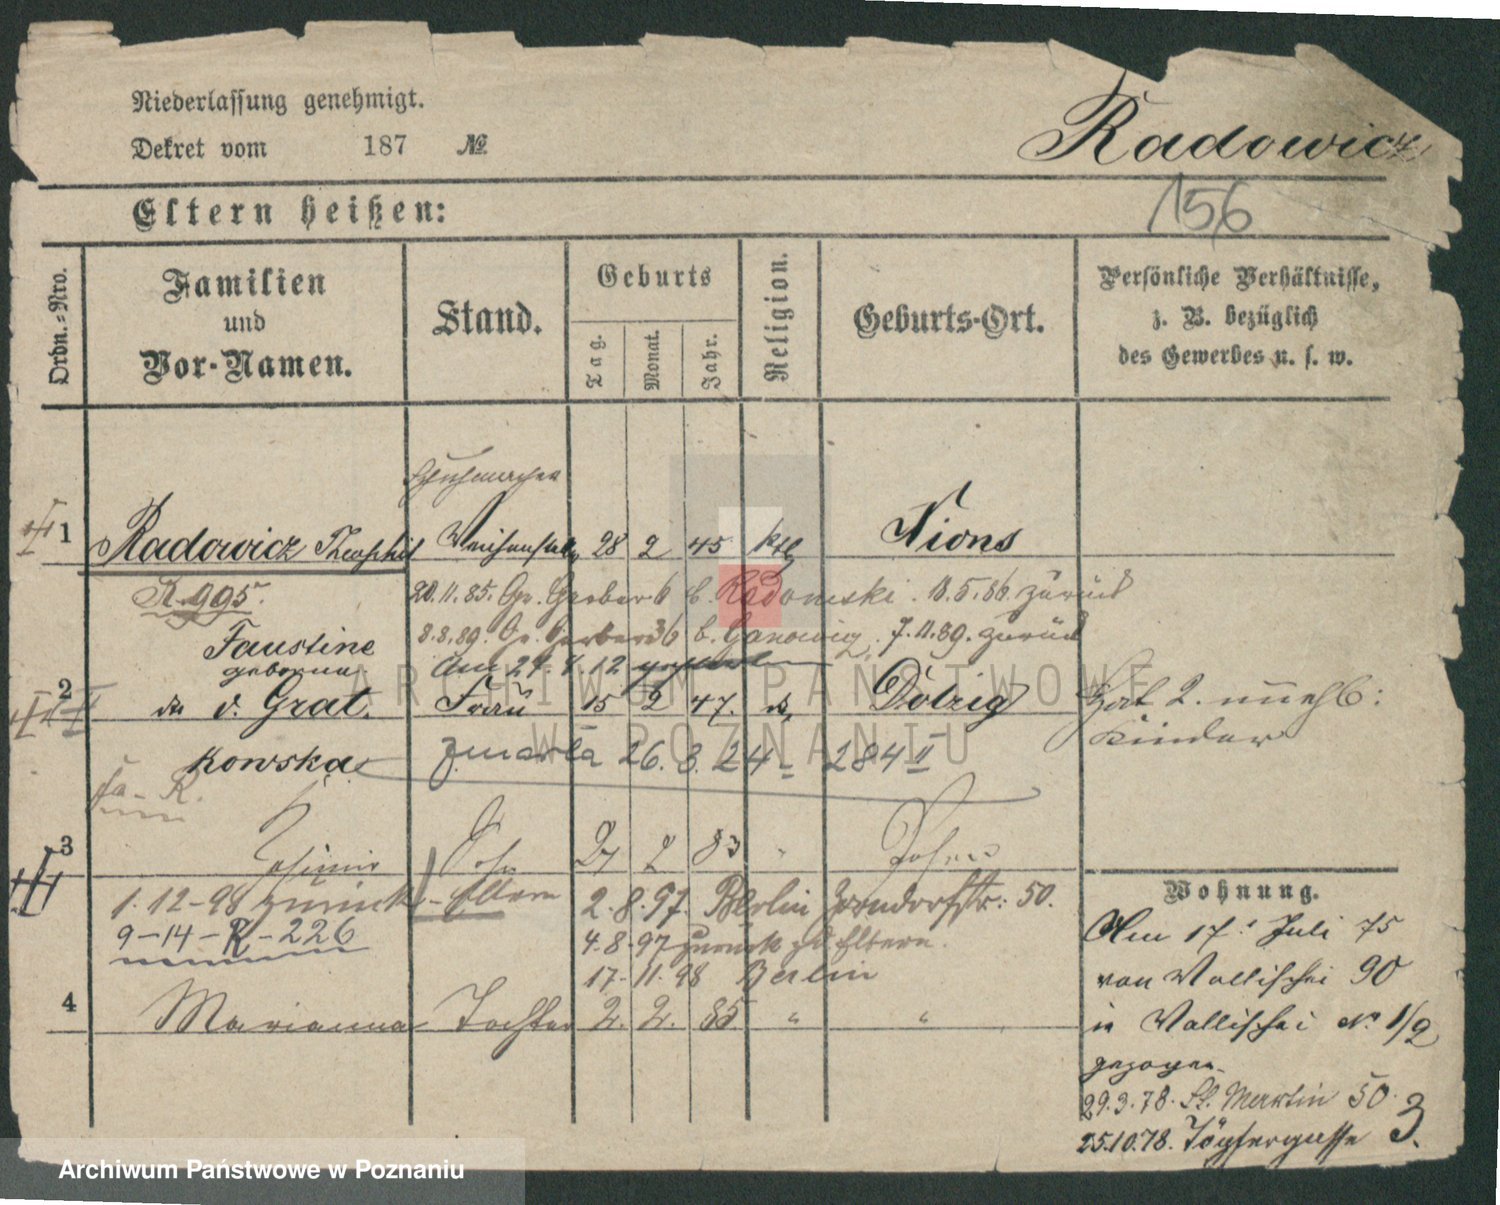 Niederlassung genehmigt.
Dekret vom 187 №
Radowicz
156
Eltern heißen:
Ordn.-Nro.
Familien
und
Vor-Namen.
Stand.
Geburts
Tag.
Monat.
Jahr.
Religion.
Geburts-Ort.
Persönliche Verhältnisse,
z. B. bezüglich
des Gewerbes u. s. w.
Schuhmacher
1 Radowicz Theophil 28 2 45 ktl Nions
R. 995.
20.11.85. Gr. Gerber 6 b. Radomski. 11.5.86. zurück
Faustine
8.8.89. Gr. Gerber 36 b. 7.11.89. zurück
geborne
2 v. Grat Frau 15 2 47. Dolzig
kowska
Hat 2. unehl:
Kinder
zmarła 26. 8. 24 284 II
3 Sohn 2 83 Posen
1.12-98 zurück - Eltern 2.8.97. Berlin Zorndorfstr: 50.
9-14-R-226
4.8-97 zurück zu Eltern.
17.11.98 Berlin
4 Marianna Tochter 2. 2. 85 " "
Wohnung.
Am 17. Juli 75
von Wallischei 90
in Wallischei No 1/2
gezogen.
29.3.78. St. Martin 50.
25.10.78. 3.
ARCHIWUM PAŃSTWOWE
W POZNANIU
Archiwum Państwowe w Poznaniu